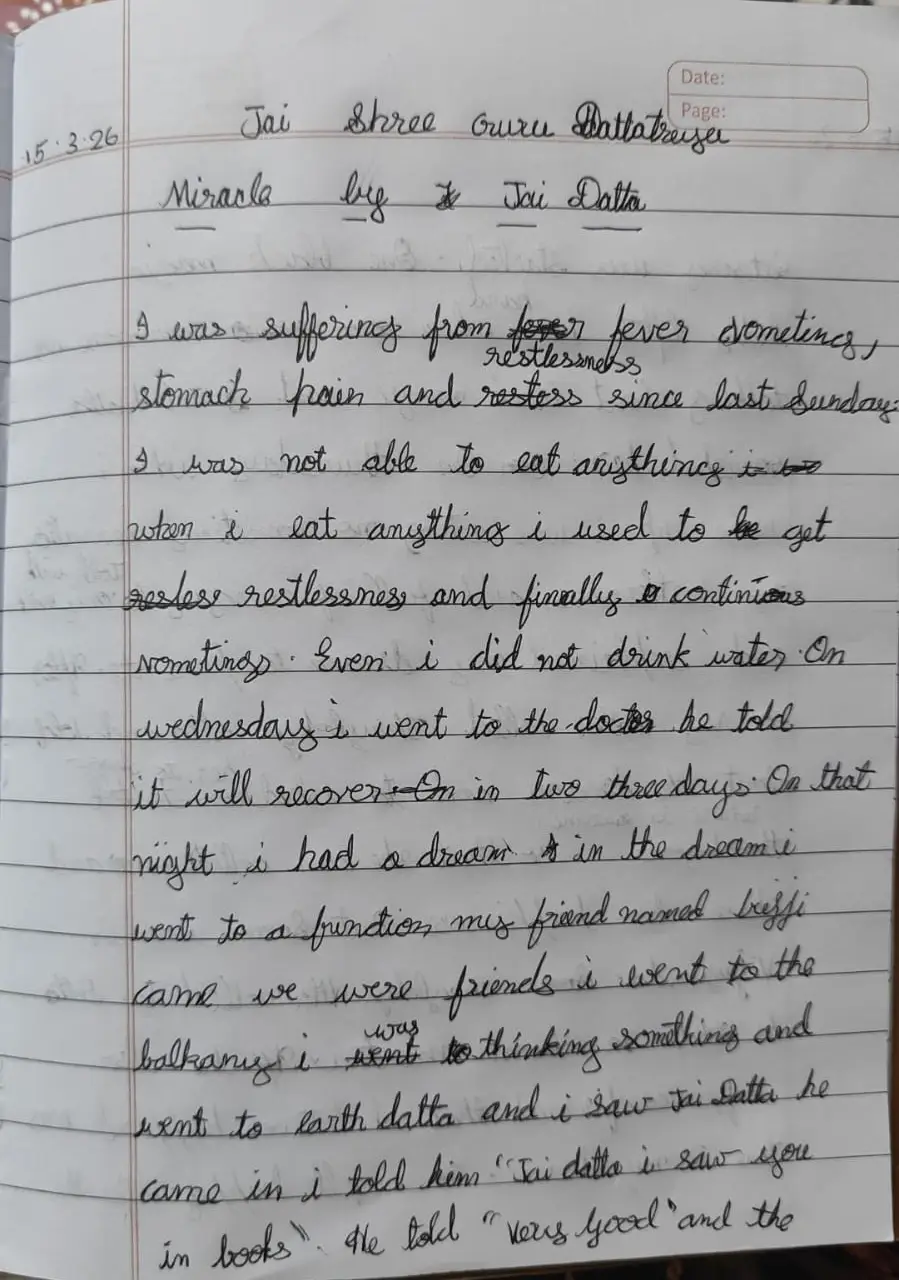 Date:
Page:
15.3.26
Jai Shree Guru Dattatreya
Miracle by Jai Datta
I was suffering from fever vometing,
restlessness
stomach pain and restess since last Sunday.
I was not able to eat anything
when i eat anything i used to be get
resless restlessness and finally continious
vometing. Even i did not drink water. On
wednesday i went to the doctor he told
it will recover On in two three days. On that
night i had a dream in the dream i
went to a function my friend named
came we were friends i went to the
was
balkany i went to thinking something and
went to earth datta and i saw Jai Datta he
came in i told him "Jai datta i saw you
in books". He told "very good" and the